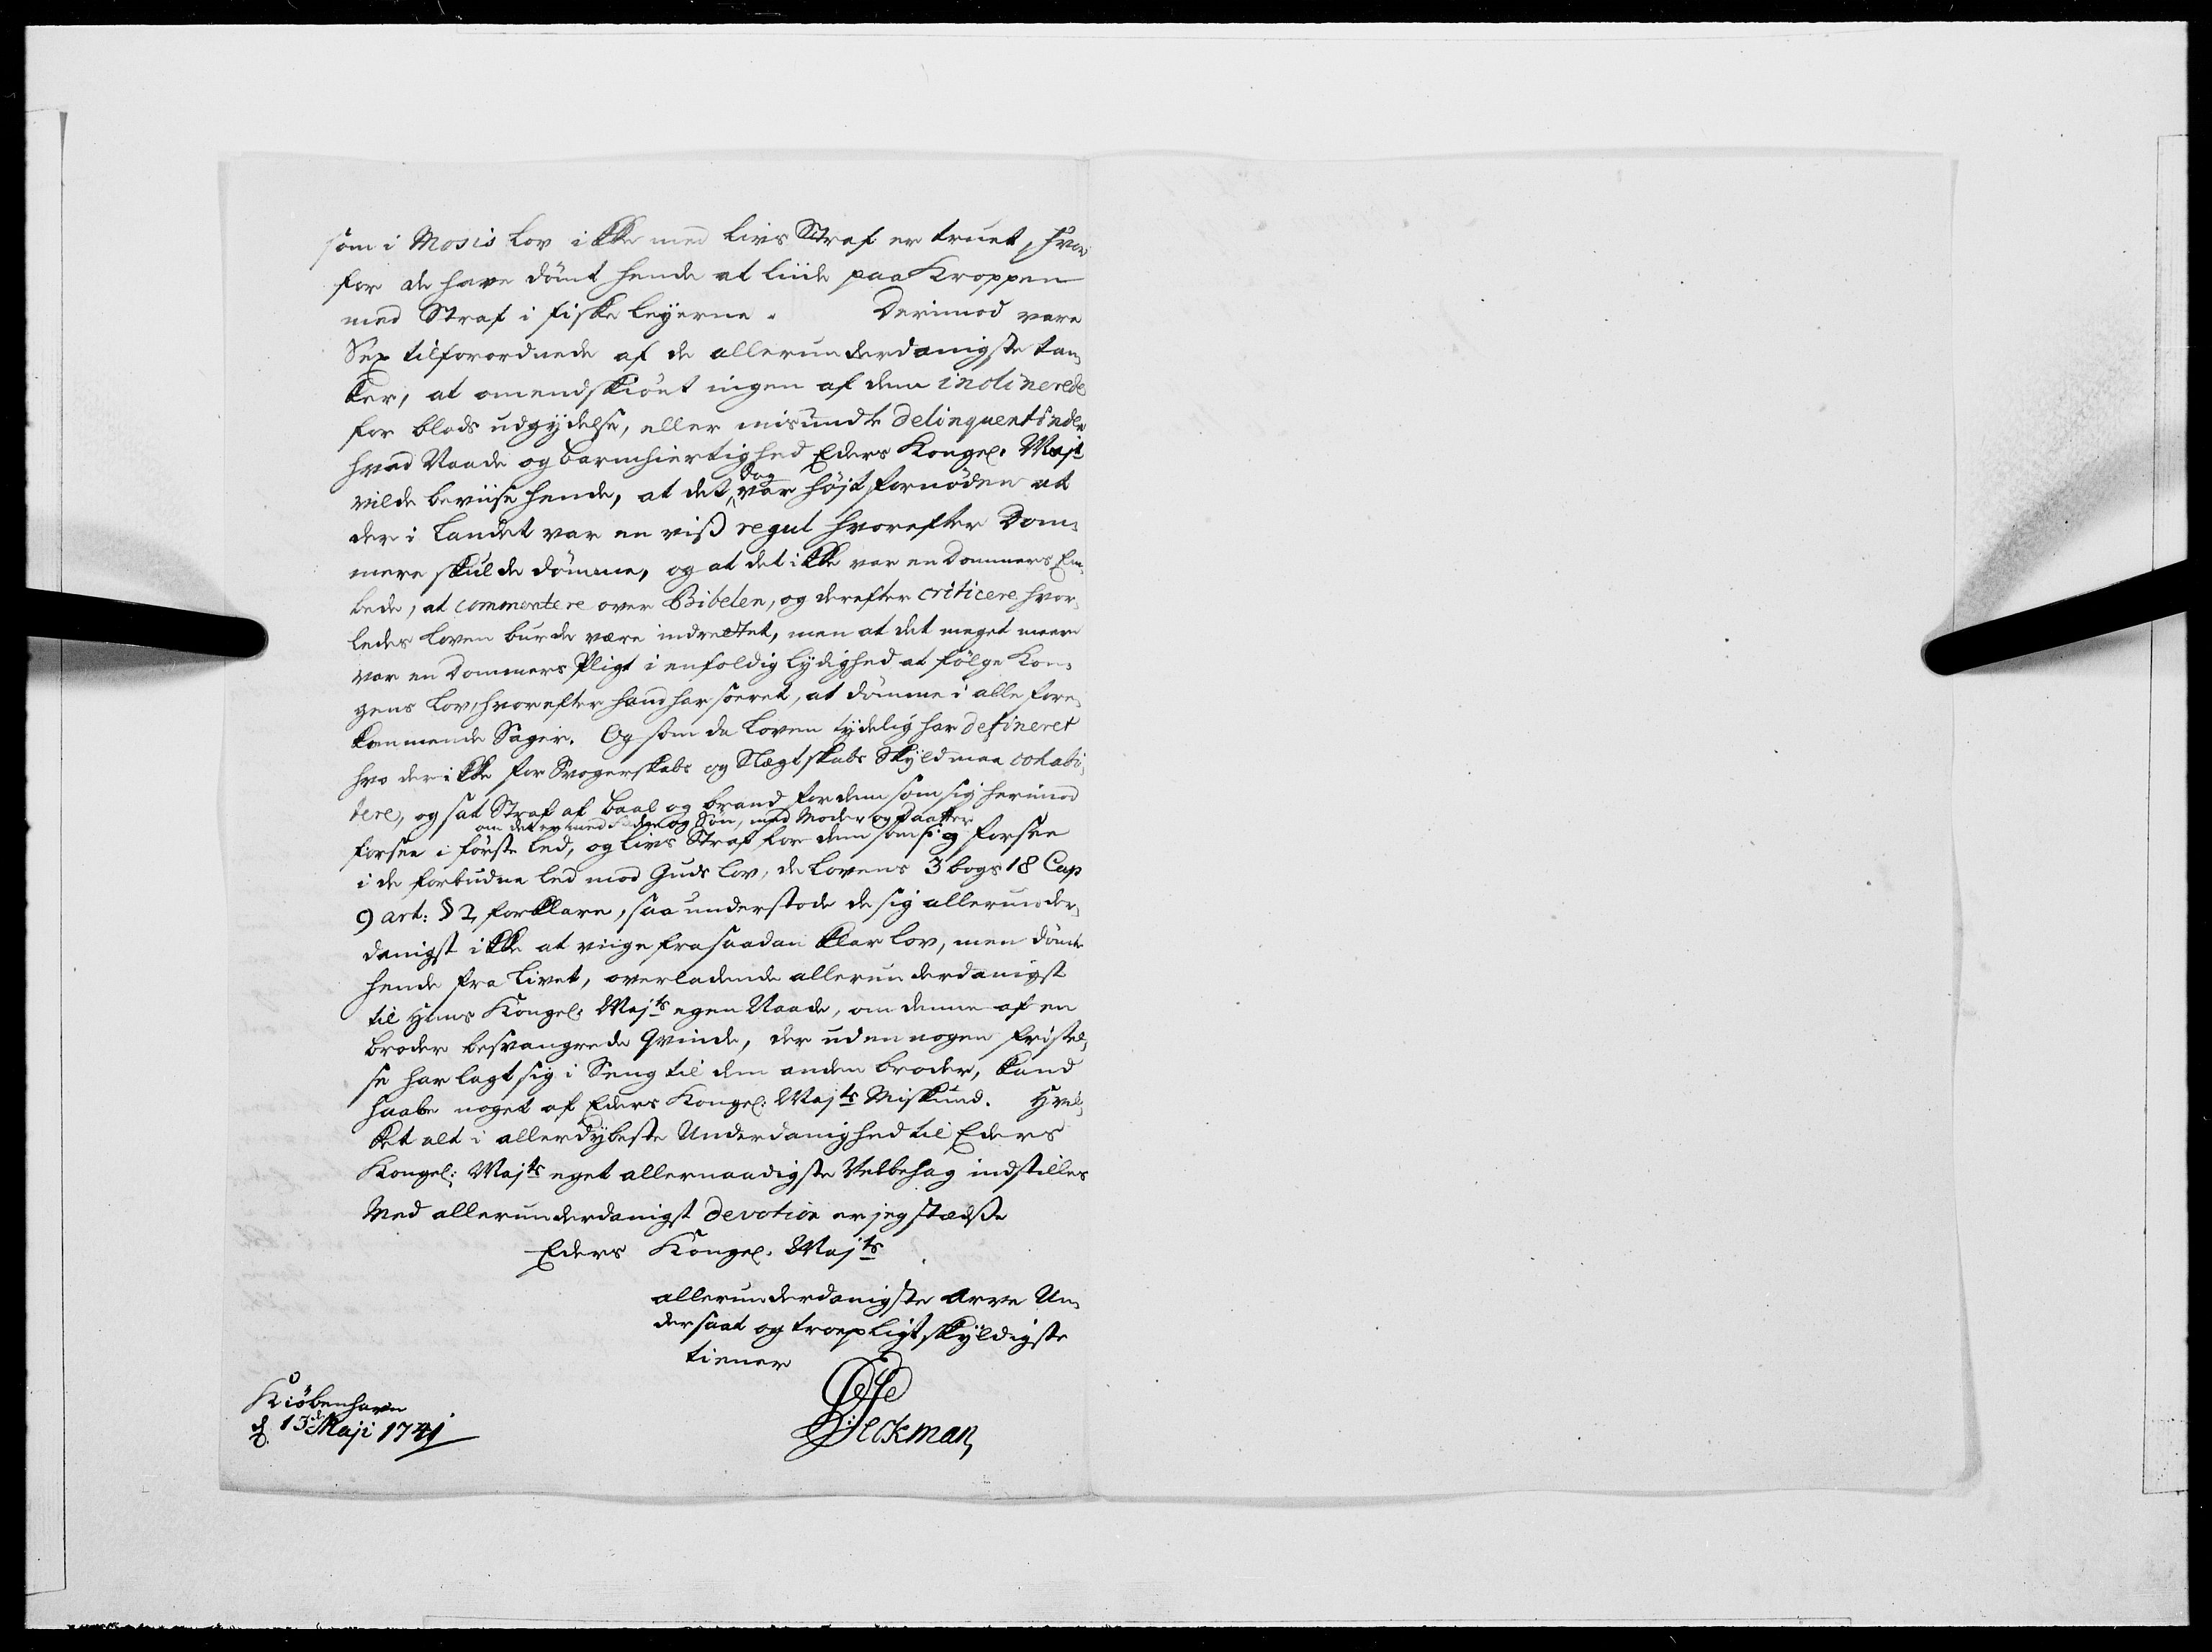 som i Mosis Lov ikke med Livs Straf er truet, hvor
for de have dömt hende at liide paa Kroppen
med Straf i Fiske Leyerne. Derimod vare
Sex tilforordnede af de allerunderdanigste tan¬
ker, at omendskiönt ingen af dem inclinerede
for blods udgydelse, eller misundte Delinquentinden
hvad Naade og Barmhiertighed Eders Kongel. Majt
vilde beviise hende, at det dog var höjst fornöden at
der i Landet var en viß regul hvorefter Dom¬
mere skulde dömme, og at det ikke var en Dommers Em¬
bede, at commentere over Bibelen, og derefter criticere hvor¬
ledes Loven burde være indrettet, men at det meget meere
var en Dommers Pligt i enfoldig Lydighed at fölge Kon¬
gens Lov, hvorefter hand har soeret, at dömme i alle fore¬
kommende Sager. Og som da Loven tydelig har defineret
hvo der ikke for Svogerskabs og Slægtskabs Skyld maa cohabi¬
tere, og sat Straf af Baal og brand for dem som sig herimod
om det er med Fader og Sön, med Moder og Daatter
forsee i förste Led, og Livs Straf for dem som sig forsee
i de forbudne Led mod Guds Lov, de Lovens 3 bogs 18 Cap
9 art: § 2, forklare, saa understode de sig allerunder¬
danigst ikke at viige fra saadan klar Lov, men dömte
hende fra Livet, overladende allerunderdanigst
til Hans Kongel: Majts egen Naade, om denne af en
broder besvangrede Qvinde, der uden nogen fristel¬
se har lagt sig i Seng til den anden broder, kand
haabe noget af Eders Kongel: Majts Miskund. Hvil¬
ket alt i allerdybeste Underdanighed til Eders
Kongel: Majts eget allernaadigste Velbehag indstilles
Med allerunderdanigst Devotion er jeg stædse
Eders Kongel. Majts
allerunderdanigste Arve Un¬
dersaat og troepligtskyldigste
tiener
Kiöbenhavn
d. 13de Maji 1741
Beckman